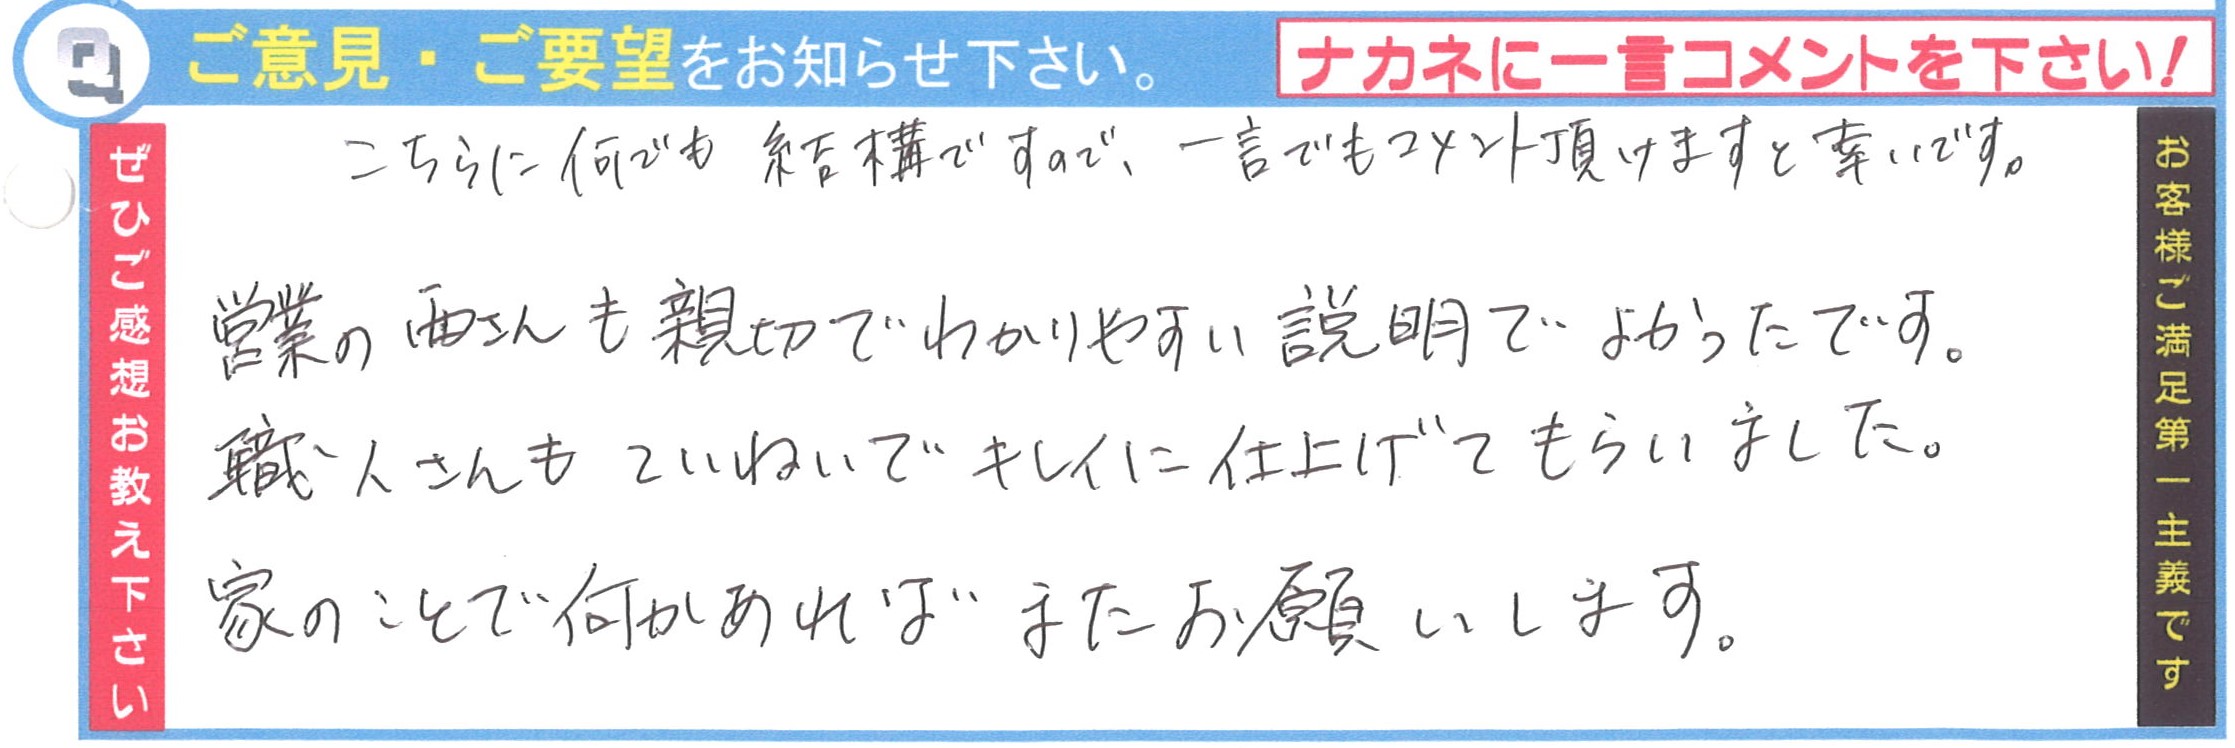 Q ご意見・ご要望をお知らせ下さい。
ナカネに一言コメントを下さい!
ぜひご感想お教え下さい
こちらに何でも結構ですので、一言でもコメント頂けますと幸いです。
営業の西さんも親切でわかりやすい説明でよかったです。
職人さんもていねいでキレイに仕上げてもらいました。
家のことで何かあればまたお願いします。
お客様ご満足第一主義です